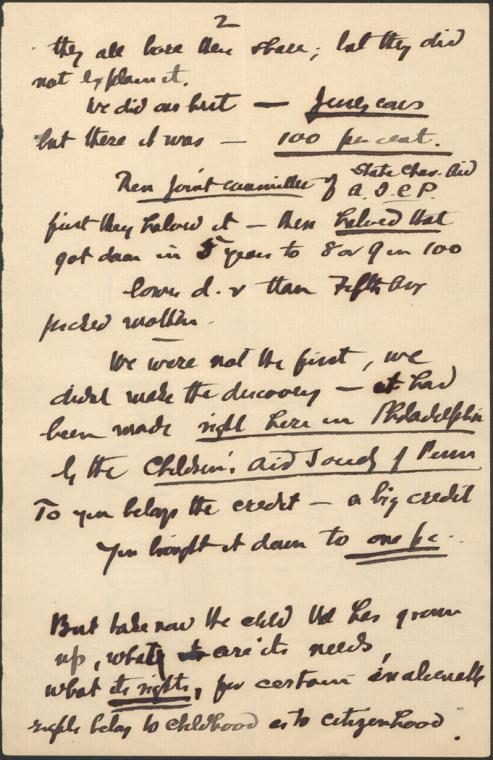 2
they all bore their share; but they did
not explain it.
We did our best — June, ears
but there it was — 100 per cent.
Then Joint Committee of State Char. Aid
A. I. C. P.
first they halved it — then halved that
got down in 5 years to 8 or 9 in 100
lower d. r than Fifth Av
picked mothers.
We were not the first, we
didnt make the discovery — it had
been made right here in Philadelphia
by the Children's Aid Society of Penn
To you belongs the credit — a big credit
You brought it down to one pc..
But take now the child that has grown
up, what are its needs,
what its rights, for certain inalienable
rights belong to childhood as to citizenhood.